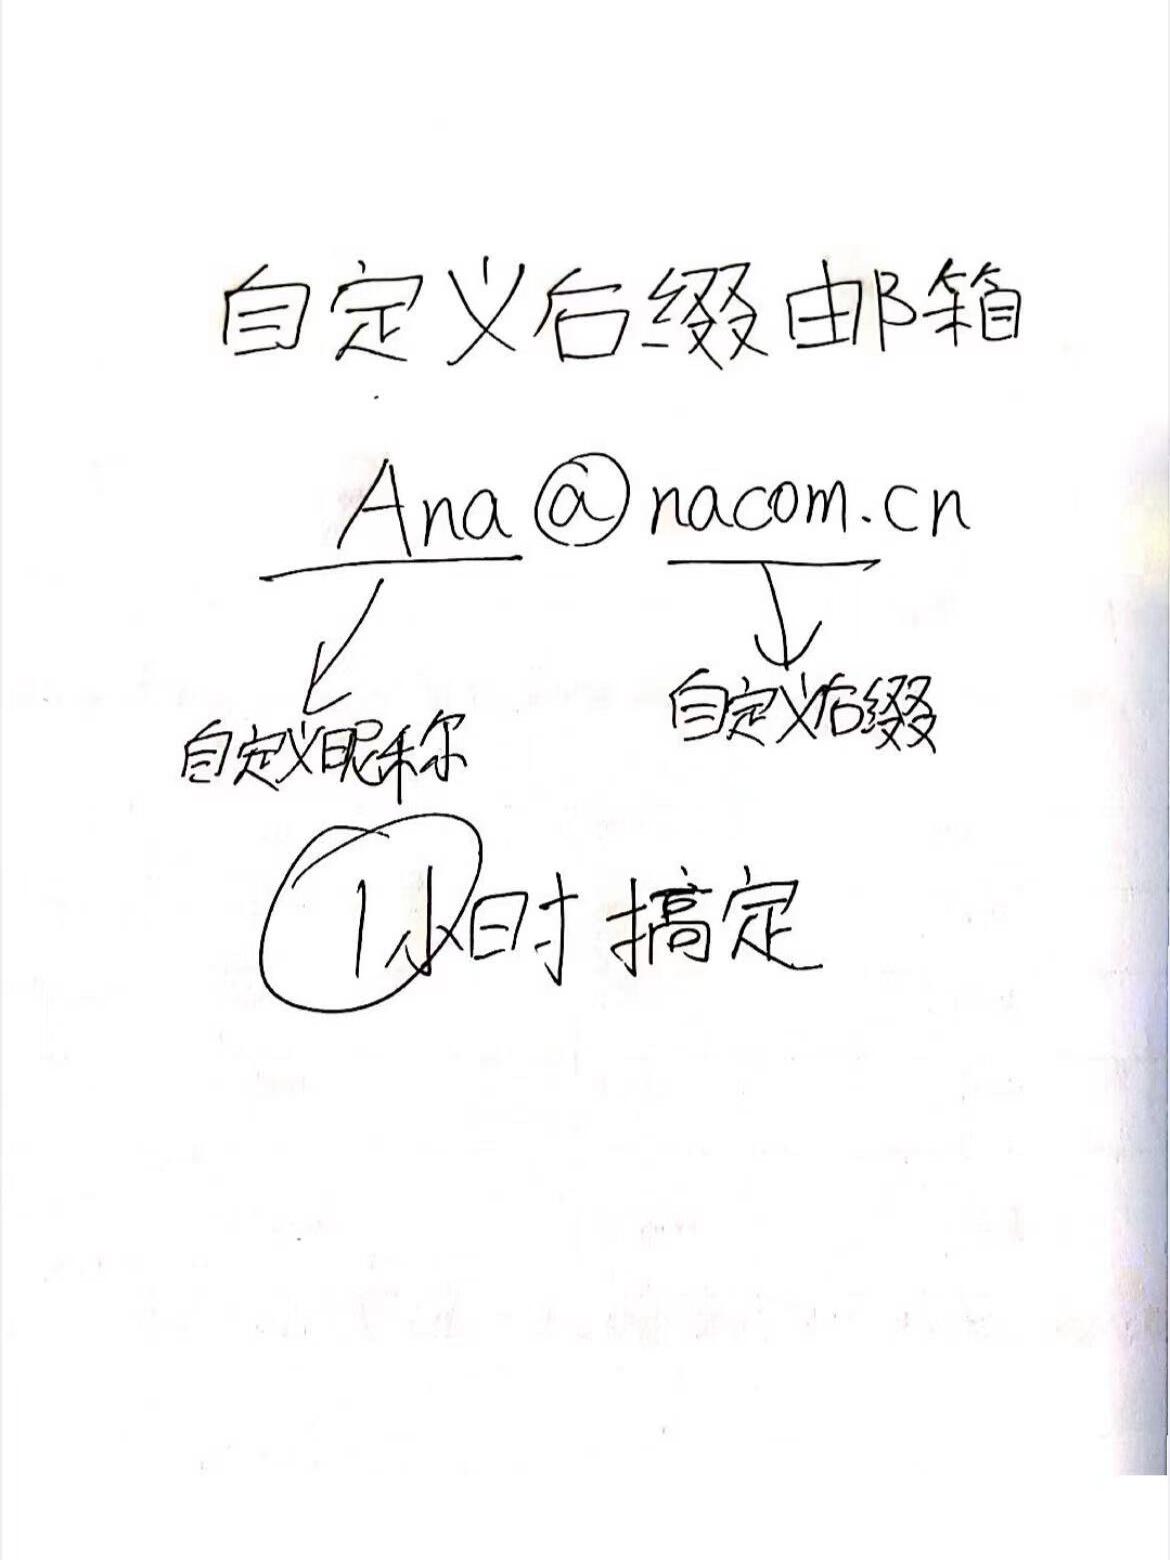 自定义后缀邮箱
Ana@nacom.cn
自定义后缀
自定义昵称
1小时搞定